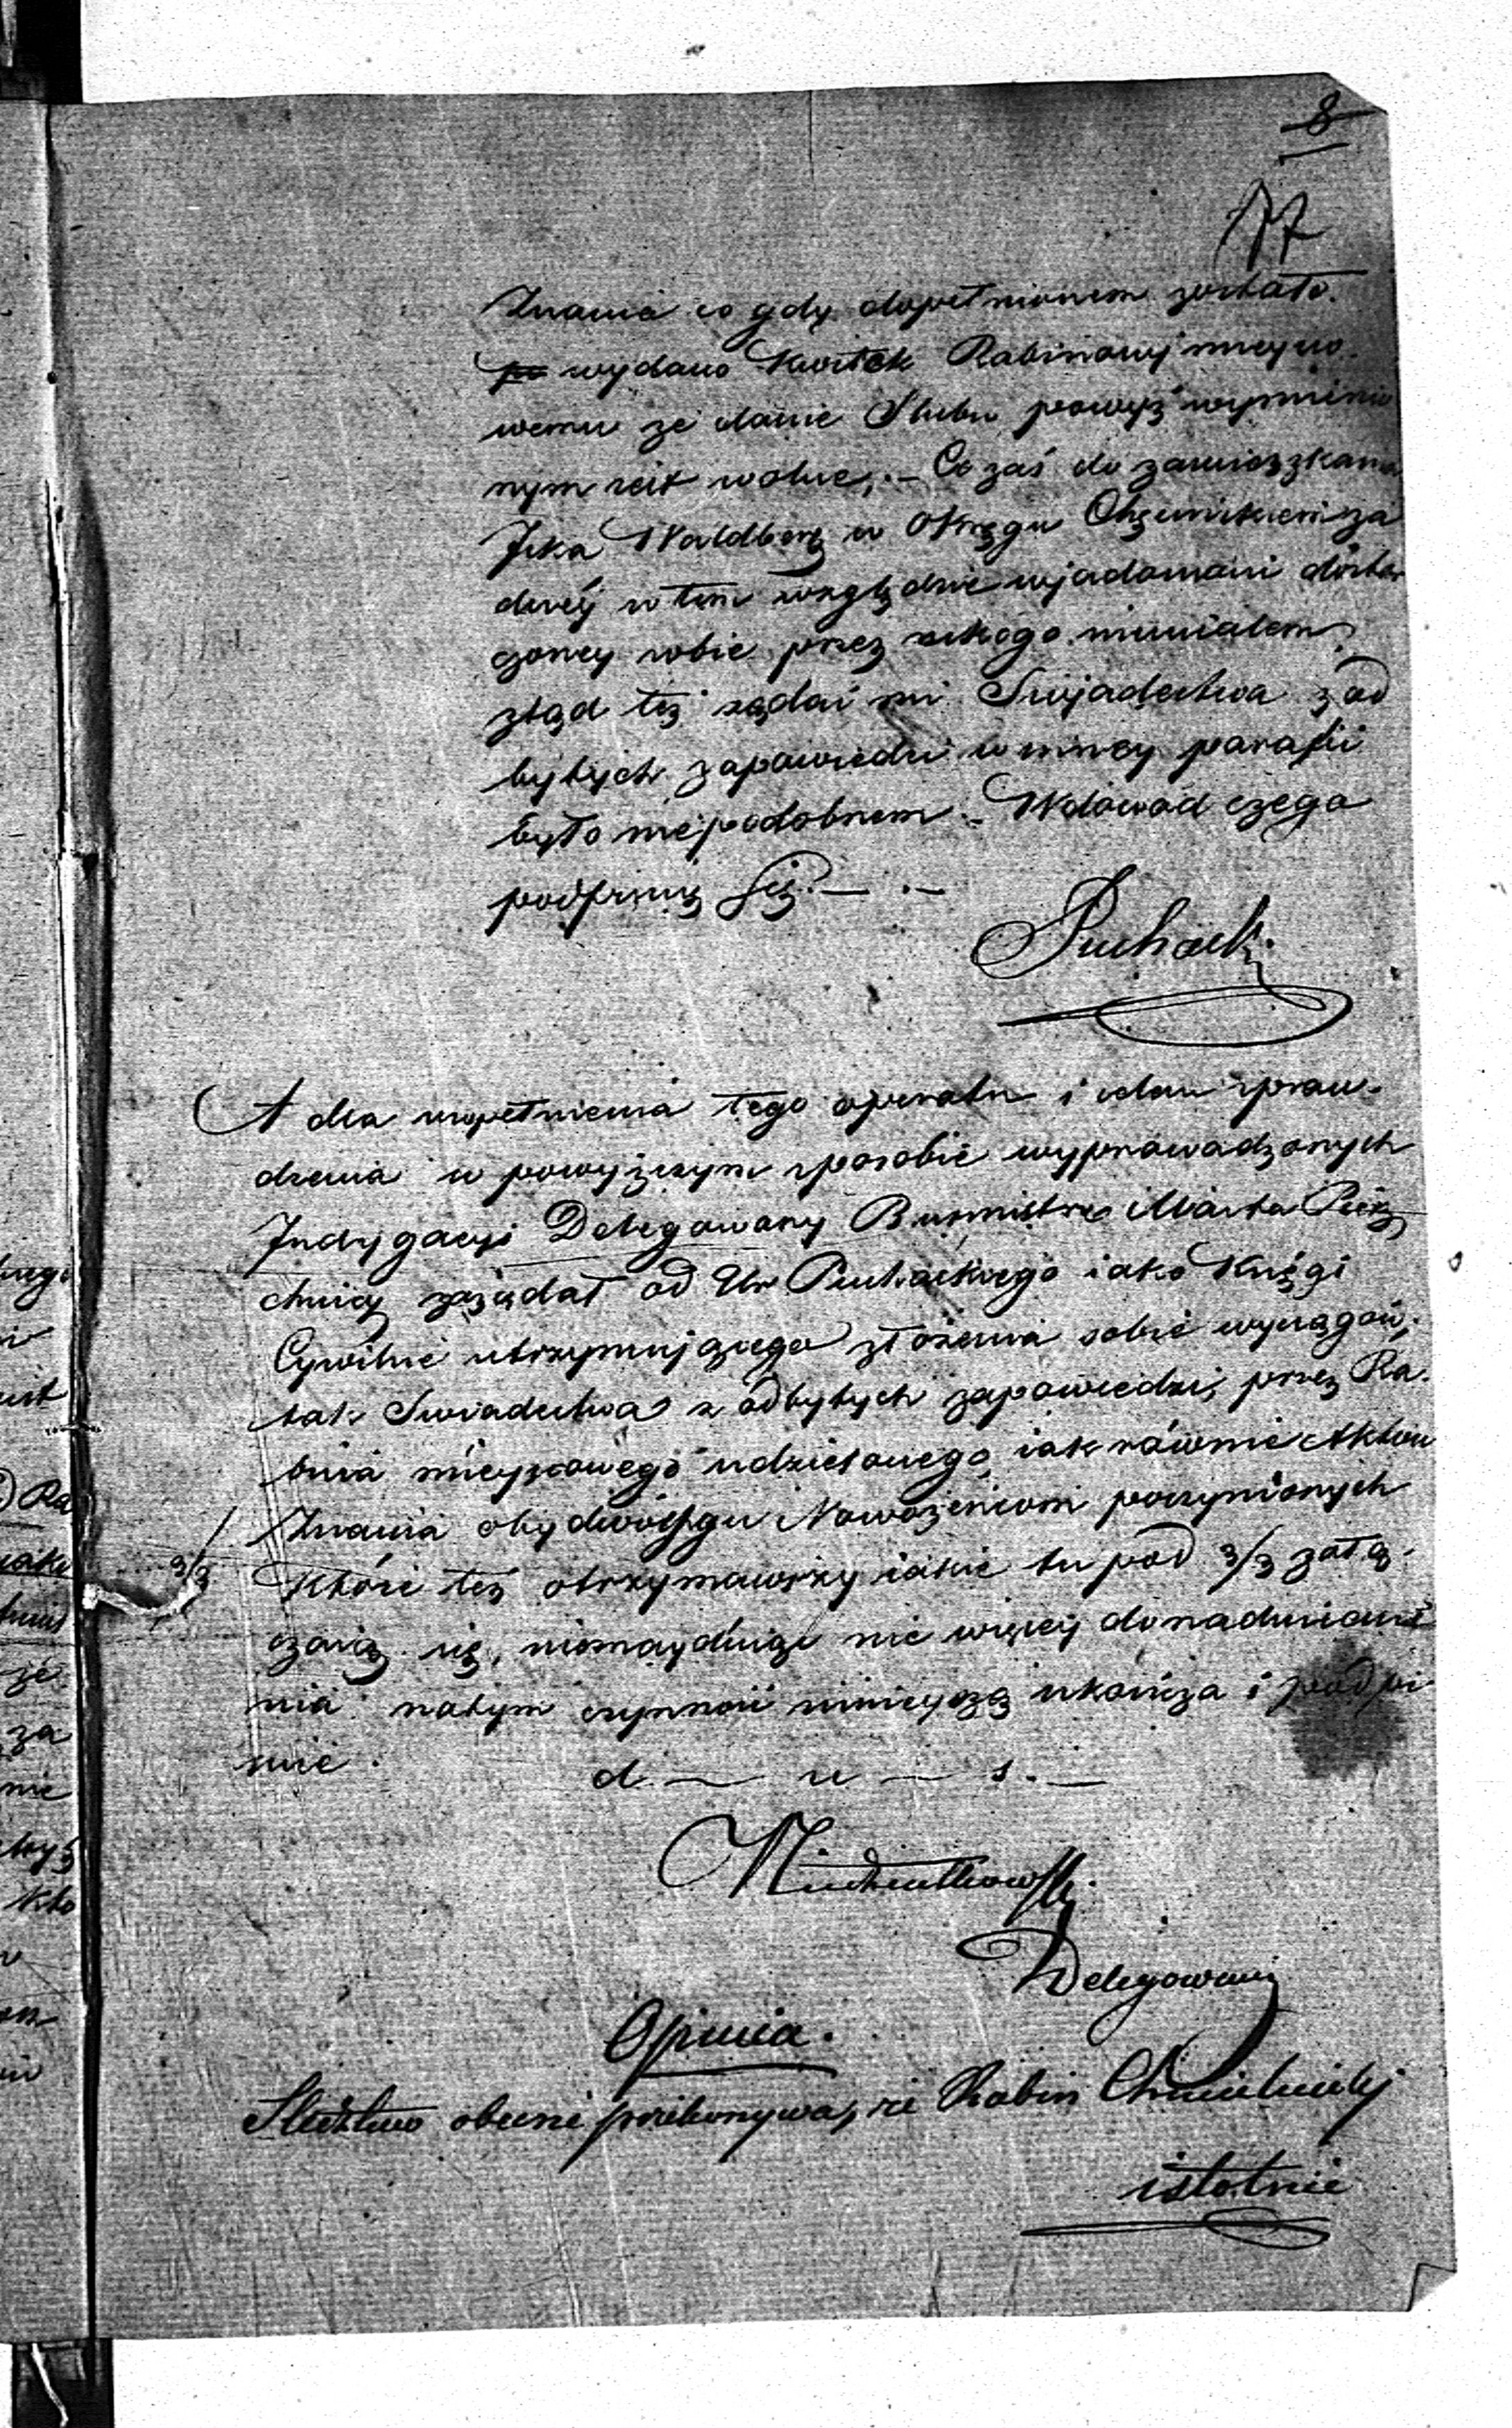 8
17
Znania co gdy dopełnionem zostało.
po wydano Kwitek Rabinowj mieysco
wemu ze danie Slubu powyż wymienio
nym iest wolne, .– Co zaś do zamieszkania
Jcka Waldberg w Okręgu Chęcinskiem za
dnéj w tem względzie wjadomości dostar
czoney sobie przez nikogo niemiałem,
ztąd też żądać mi Swjadectwa z od
bytych zapowiedzi w inney parafii
było niepodobnem. – Wdowód czego
podpisuię się. — . –
Puchacki
A dla uzupełnienia tego operatu i celem spraw-
dzenia w powyższym sposobie wyprowadzonych
Indygacyi Delegowany Burmistrz Miasta Piérz
chnicy zażądał od Ur Puchackiego iako Księgi
Cywilne utrzymującego złożenia sobie wyciągów,
tak Swiadectwa z odbytych zapowiedzi, przez Ra-
bina mieyscowego udzielonego, iak równie Aktów
Znania obydwóchgu Nowożeńcom poczynionych
Które też otrzymawszy iakie tu pod 3/3 załą-
3/3
czaią się, nieznayduiąc nic więcéj do nadmienie
nia natym czynność ninieyszą ukończa i podpi-
suie.
d — u — s. —
Niedziałkowski
Delegowany
Opinia.
Sledztwo obecne przekonywa, że Rabin Chmielnicki
istotnie